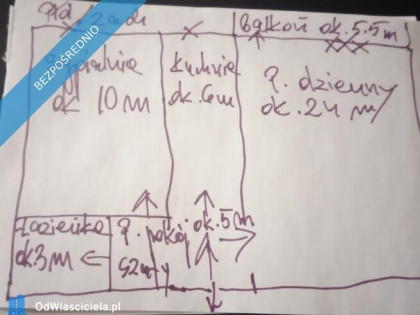 Płd / Zach
Balkon ok. 5.5 m
BEZPOŚREDNIO
Sypialnia
ok 10 m
kuchnia
ok. 6 m
P. dzienny
ok. 24 m
Łazienka
ok 3 m
P. pokój ok. 5 m
OdWlasciciela.pl